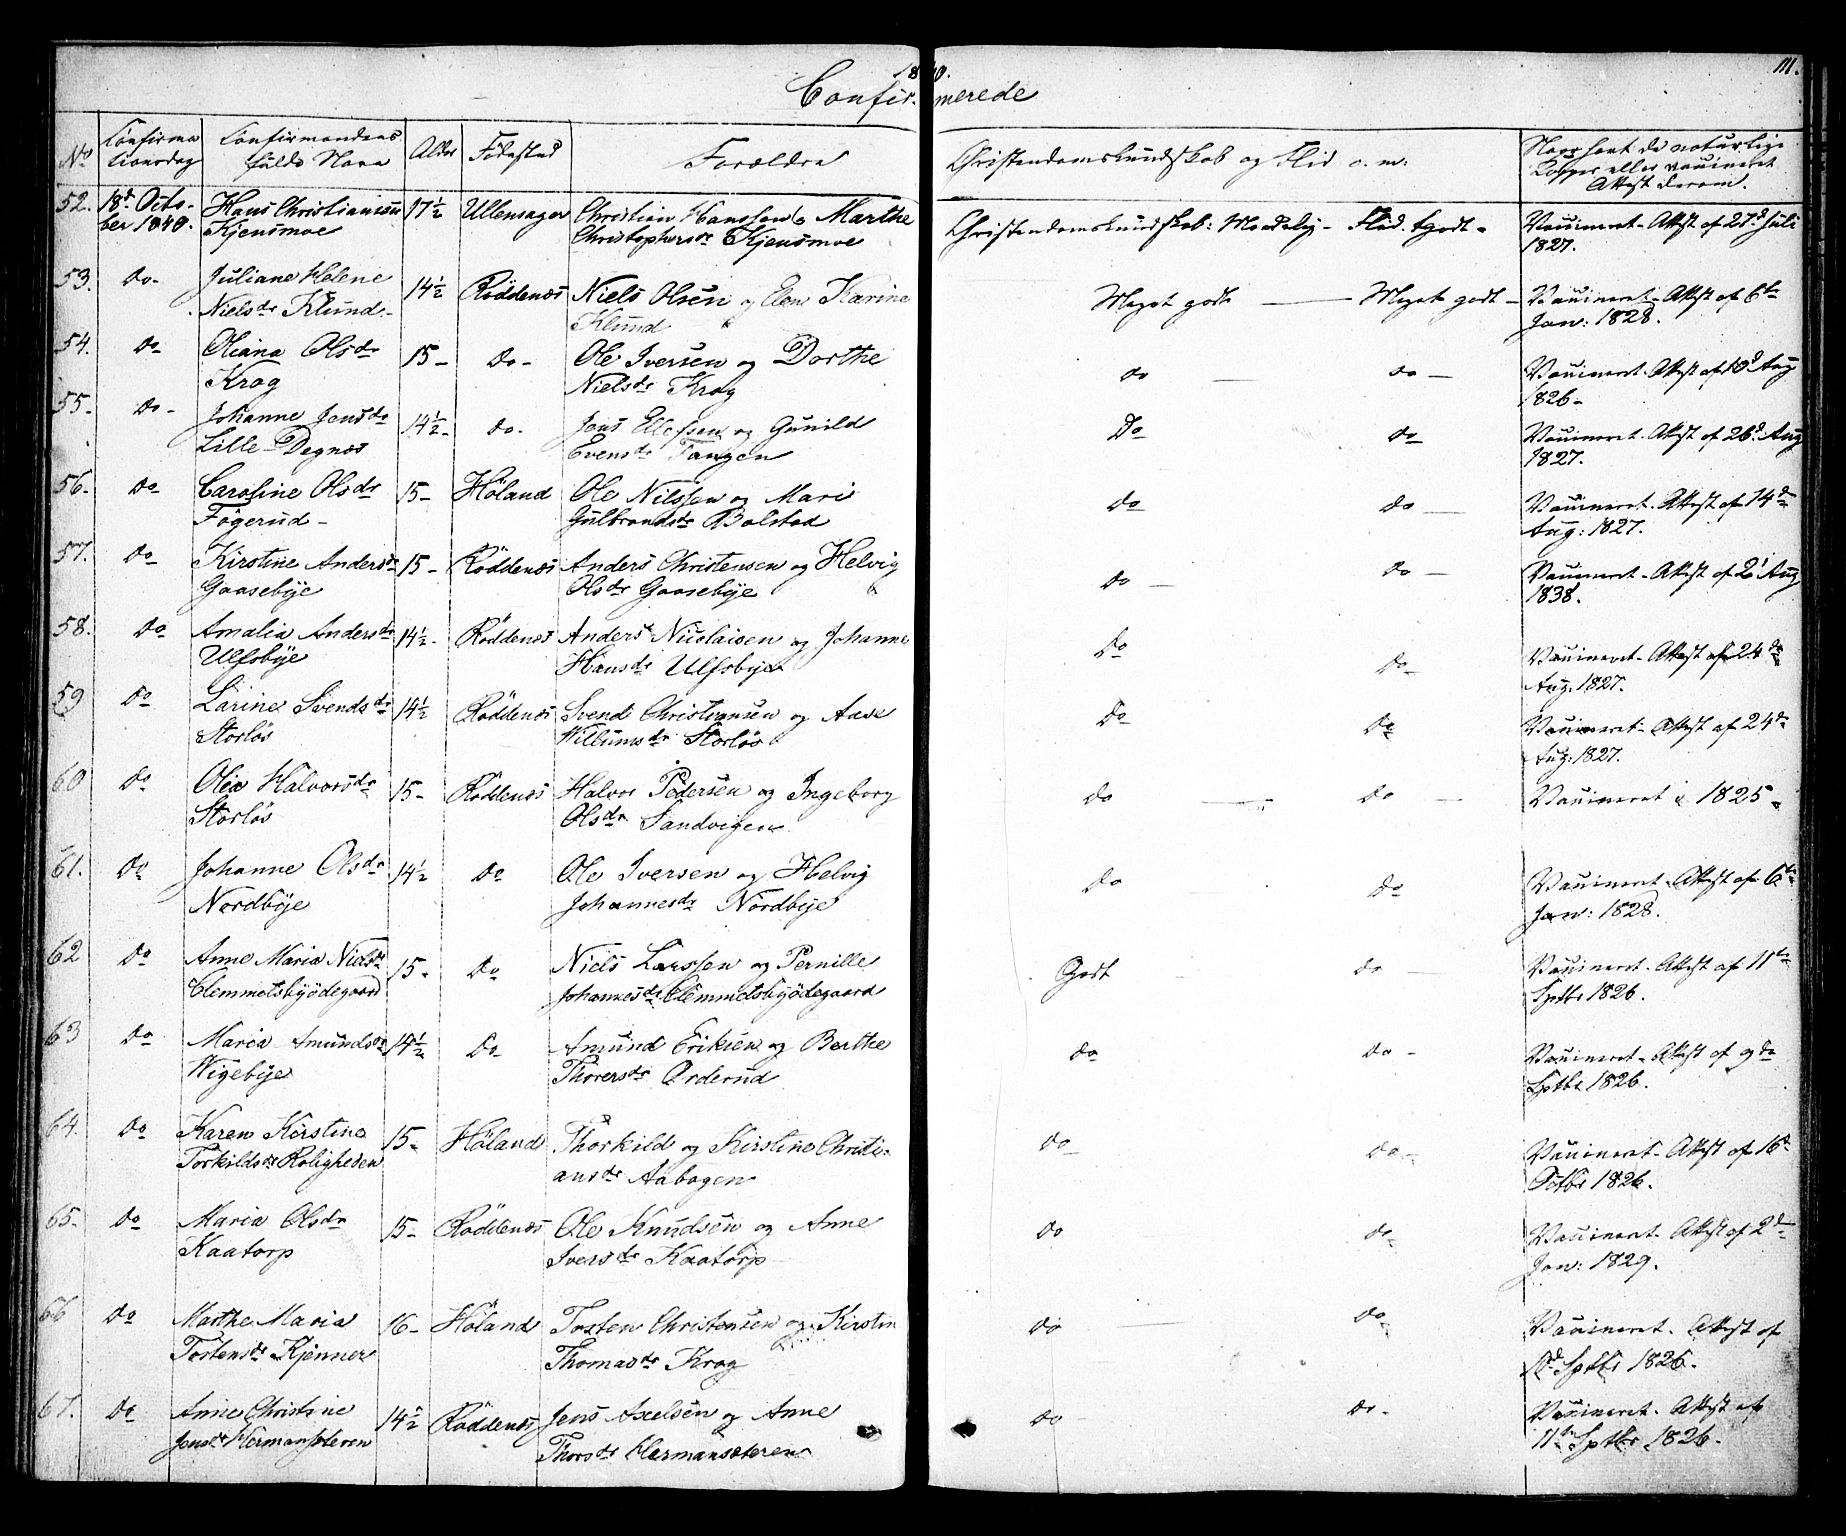 1840.
111.
Confirmerede
No
Confirma
tionsdag
Confirmandens
fulde Navn
Alder
Fødested
Forældre
Christendomskundskab og Flid o. m.
Naar havt de naturlige
Kopper eller vaccineret
Attest derom.
52. 18de Octo- Hans Christiansen 17½ Ullensager Christian Hanssen & Marthe Christendomskundskab: Maadelig - Flid: tgodt - Vaccineret - Attest af 27d Juli
ber 1840. Kjensmoe Christophersdr Kjensmoe 1827.
53. Do- Juliane Helene 14½ Röddenæs Niels Olsen og Elen Karine Meget godt — Meget godt - Vaccineret - Attest af 6te
Nielsdr Klund - Klund Jan: 1828.
54. Do Oliana Olsdr 15- Do- Ole Iversen og Dorthe do — do — Vaccineret. Attest af 10d Aug
Krog Nielsdr Krog 1826-
55. Do- Johanne Jensdr 14½- Do- Jens Ellefsen og Gunild Do do Vaccineret. Attest af 26d Aug
Lille Degnæs Evensdr Tangen 1827.
56. Do Caroline Olsdr 15- Höland Ole Nilssen og Mari do do — Vaccineret. Attest af 14de
Fögerud - Gulbrandsdr Bolstad Aug: 1827.
57. Do Kirstine Andersdr 15- Röddenæs Anders Christensen og Helvig do — do — Vaccineret - Attest af 2 Aug
Gaasebye Olsdr Gaasebye 1838.
58. Do Amalia Andersdr 14½- Röddenæs Anders Nicolaisen og Johanne Do Do- Vaccineret - Attest af 24de
Ulfsbye Hansdr Ulfsbye Aug. 1827.
59 Do Larine Svendsdr 14½ Röddenæs Svend Christiansen og Aase Do Do Vaccineret - Attest af 24de
Storløs Willumsdr Storløs Aug: 1827.
60 Do Olea Halvorsdr 15- Röddenæs Halvor Pedersen og Ingeborg do — do — Vaccineret i 1825-
Storløs Olsdr Sandvigen
61. Do Johanne Olsdr 14½ Do Ole Iversen og Helvig do Do Vaccineret. Attest af 6te
Nordbye Johannesdr Nordbye Jan: 1828.
62 Do Anne Maria Nielsdr 15- Do Niels Larssen og Pernille Godt do — Vaccineret. Attest af 11te
Clemmetsbyödegaard Johannesdr Clemmetsbyödegaard Sptbr 1826.
63 Do Maria Amundsdr 14½ Do Amund Eriksen og Berthe do do - Vaccineret - Attest af 9de
Wigebye Thorersdr Örderud Sptbr 1826.
64. Do Karen Kirstine 15- Höland Thorkild og Kirstine Christi- do do- Vaccineret - Attest af 16de
Torkildsdr Roligheden ansdr Aabogen 1826.
65. Do Maria Olsdr 15- Röddenæs Ole Knudsen og Anne do do- Vaccineret - Attest af 2de
Kaatorp Iversdr Kaatorp Jan: 1829.
66 Do Marthe Maria 16- Höland Tosten Christensen og Kirstin do do Vaccineret. Attest af
Tostensdr Kjenner Thomasdr Krog Sptbr 1826.
67. Do Anne Christine 14½ Röddenæs Jens Axelsen og Anne do - do- Vaccineret. Attest af
Jensdr Hermansæteren Thorsdr Hermansæteren 11te Sptbr 1826.